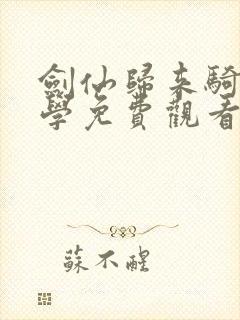 劍仙歸来騎
學免費觀看
蘇不醒